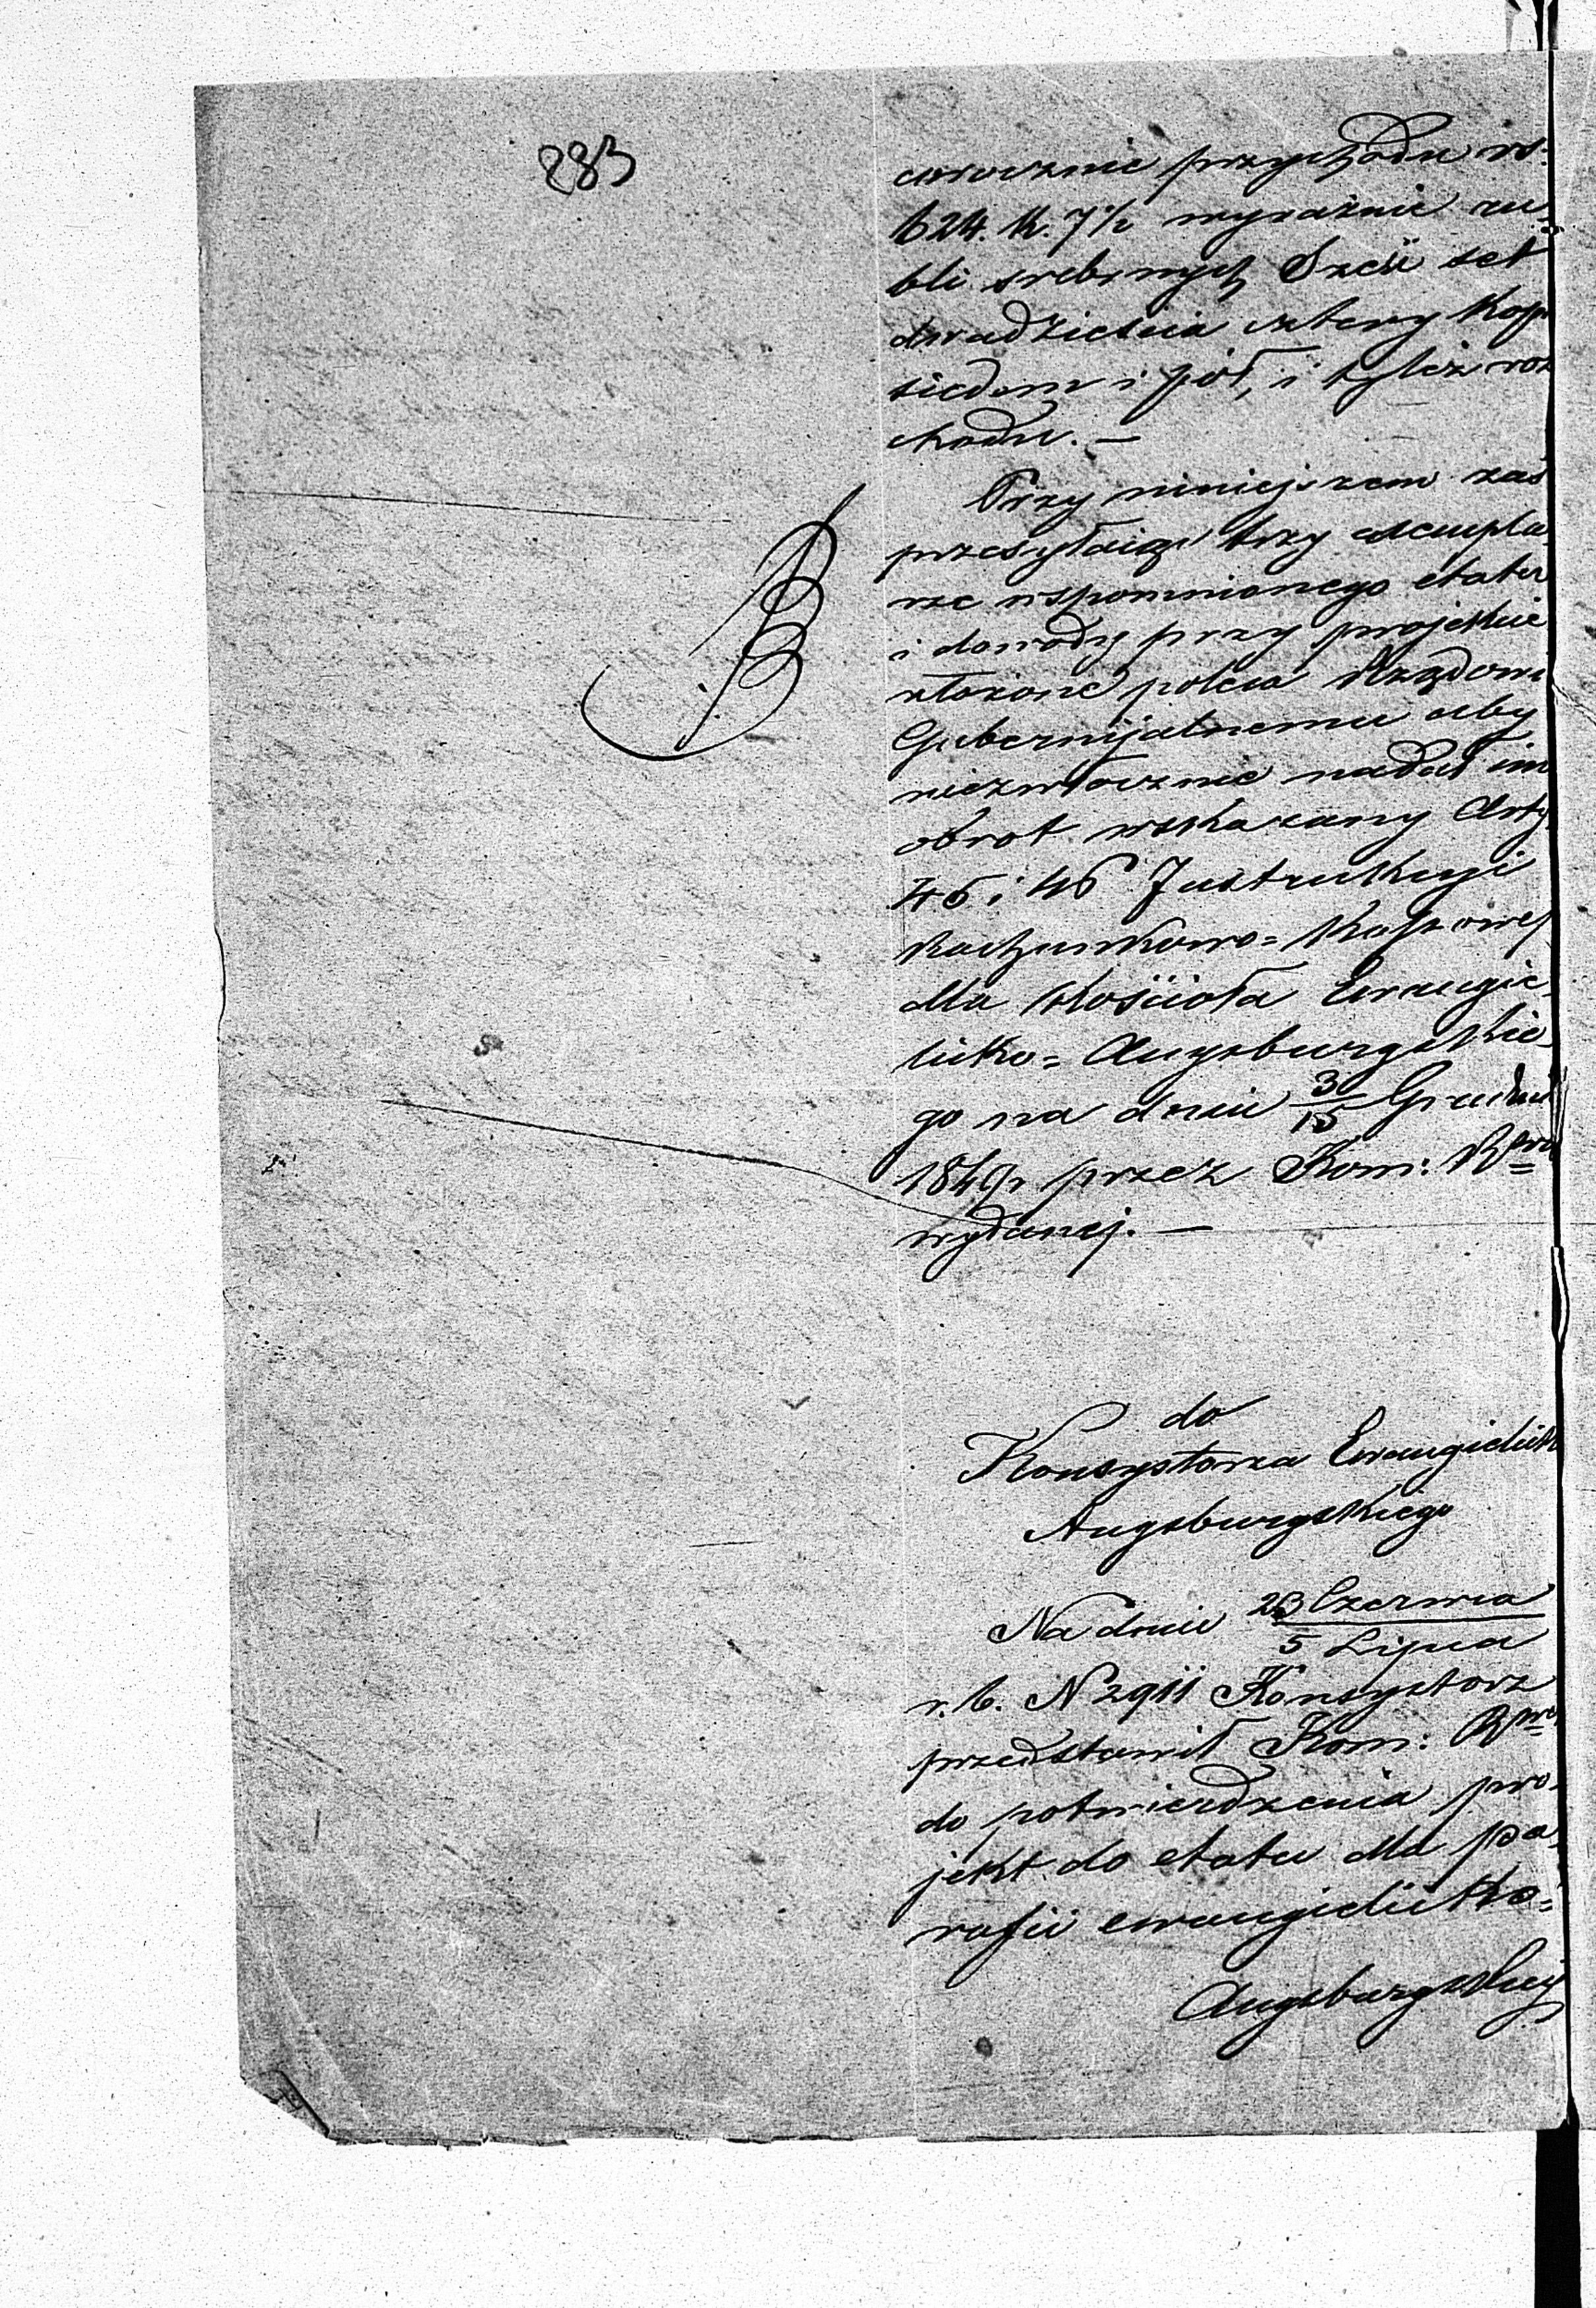 283
corocznie przychodu rs.
624. K. 7½ wyraźnie ru
bli srebrnych Sześć set
dwadzieścia cztery Kop
siedem i pół, i tyleż roz
chodu. —
Przy niniejszem zaś
przesyłając trzy exempla
rze wspomnionego etatu
i dowody przy projekcie
złożone poleca Rządowi
Gubernijalnemu aby
niezwłocznie nadał im
obrot wskazany Arty
45 i 46 Instrukcyi
Rachunkowo= Kassowej
dla Kościoła Ewangie
licko= Augsburgskie
go na dniu 3/15 Grudni
1849 r przez Kom: Rwą
wydanej. —
do
Konsystorza Ewangielick
Augsburgskiego
Na dniu 23 Czerwca
5 Lipca
r. b. N 2911 Konsystorz
przedstawił Kom: Rwej
do potwierdzenia pro-
jekt do etatu dla pa-
rafii ewangielicko=
Augsburgskiej